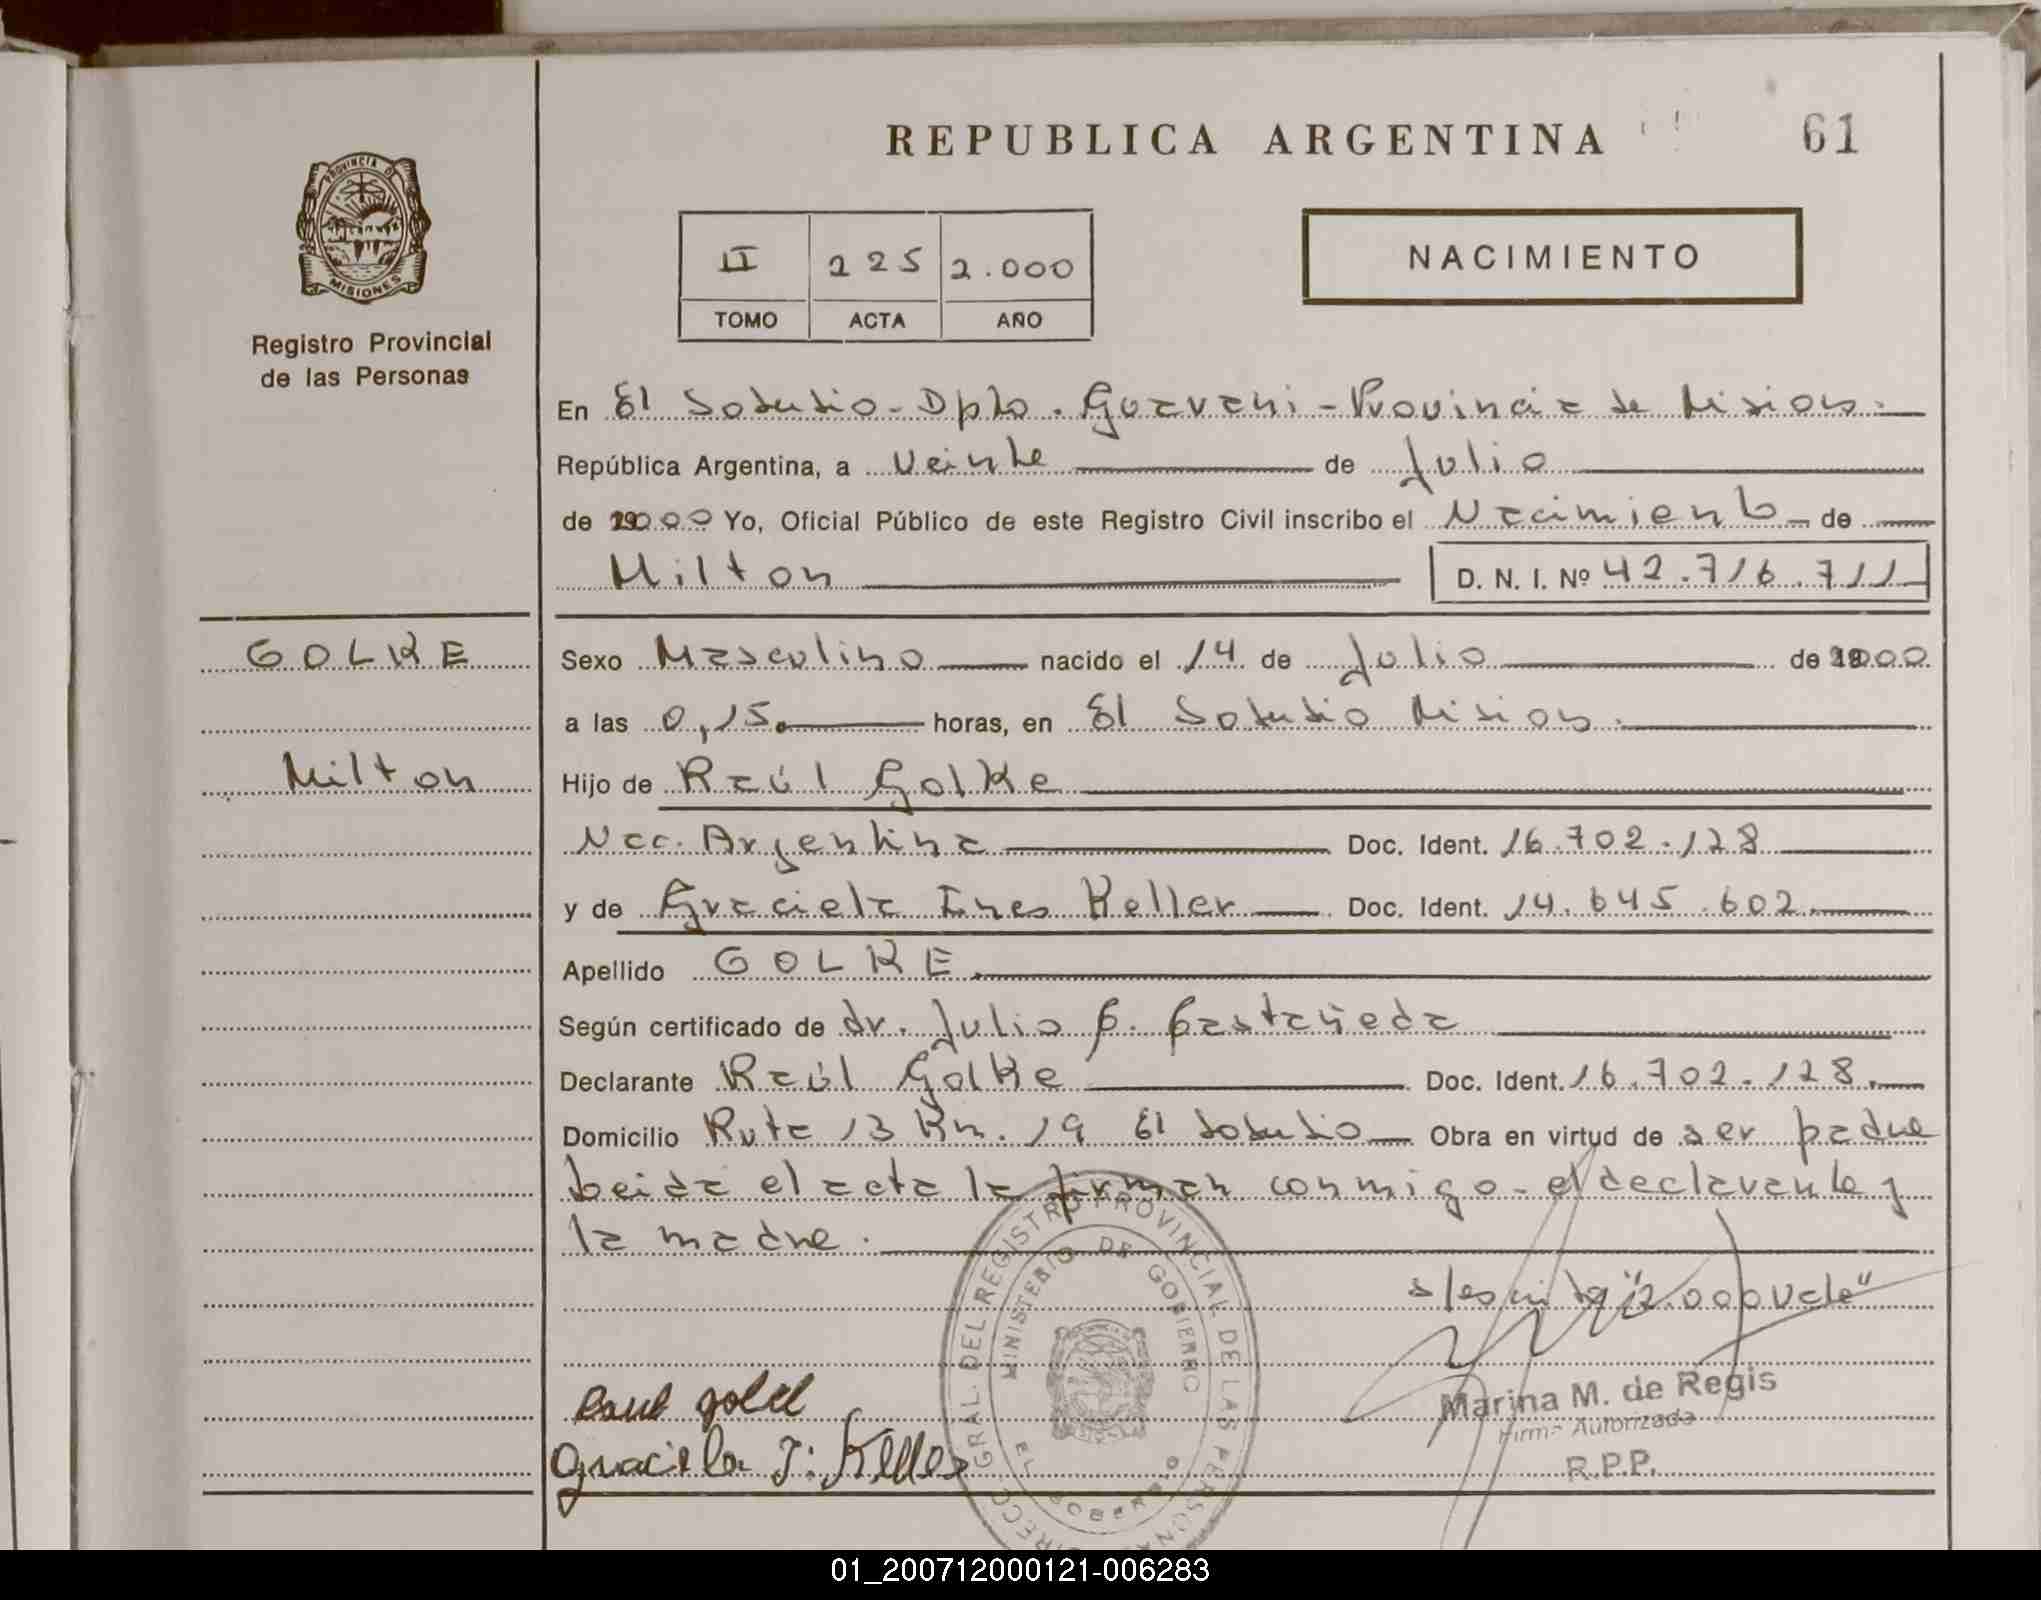 REPUBLICA ARGENTINA
61
PROVINCIA DE
MISIONES
Registro Provincial
de las Personas
II 225 2.000
TOMO ACTA AÑO
NACIMIENTO
En El Soberbio - Dpto. Guarani - Provincia de Misiones.
República Argentina, a Veinte de Julio
de 2000 Yo, Oficial Público de este Registro Civil inscribo el Nacimiento de
Milton D. N. I. Nº 42.716.711
GOLKE
Milton
Sexo Masculino nacido el 14 de Julio de 2000
a las 0,15. horas, en El Soberbio Misiones.
Hijo de Raúl Golke
Nac. Argentina Doc. Ident. 16.702.128
y de Graciela Ines Keller Doc. Ident. 14.645.602
Apellido GOLKE.
Según certificado de dr. Julio C. Castañeda
Declarante Raúl Golke Doc. Ident. 16.702.128.
Domicilio Ruta 13 Km. 19 El Soberbio Obra en virtud de ser padre
Leida el acta la firman conmigo - el declarante y
la madre.
"2.000 Vale"
Raul
Graciela I. Keller
DIRECC. GRAL. DEL REGISTRO PROVINCIAL DE LAS PERSONAS
MINISTERIO DE GOBIERNO
EL SOBERBIO
Marina M. de Regis
Firma Autorizada
R.P.P.
01_200712000121-006283